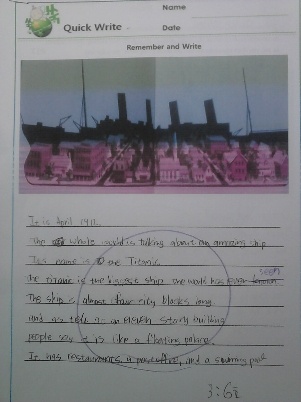 Quick Write
Name
Date
Remember and Write
It is April 1912.
The whole world is talking about an amazing ship
name is the Titanic
the titanic is the biggest ship the world has ever known seen
The ship is almost four city blocks long
and as tall as an eleven story building
people say it is like a floating palace.
It has restaurants, a post office, and a swimming pool